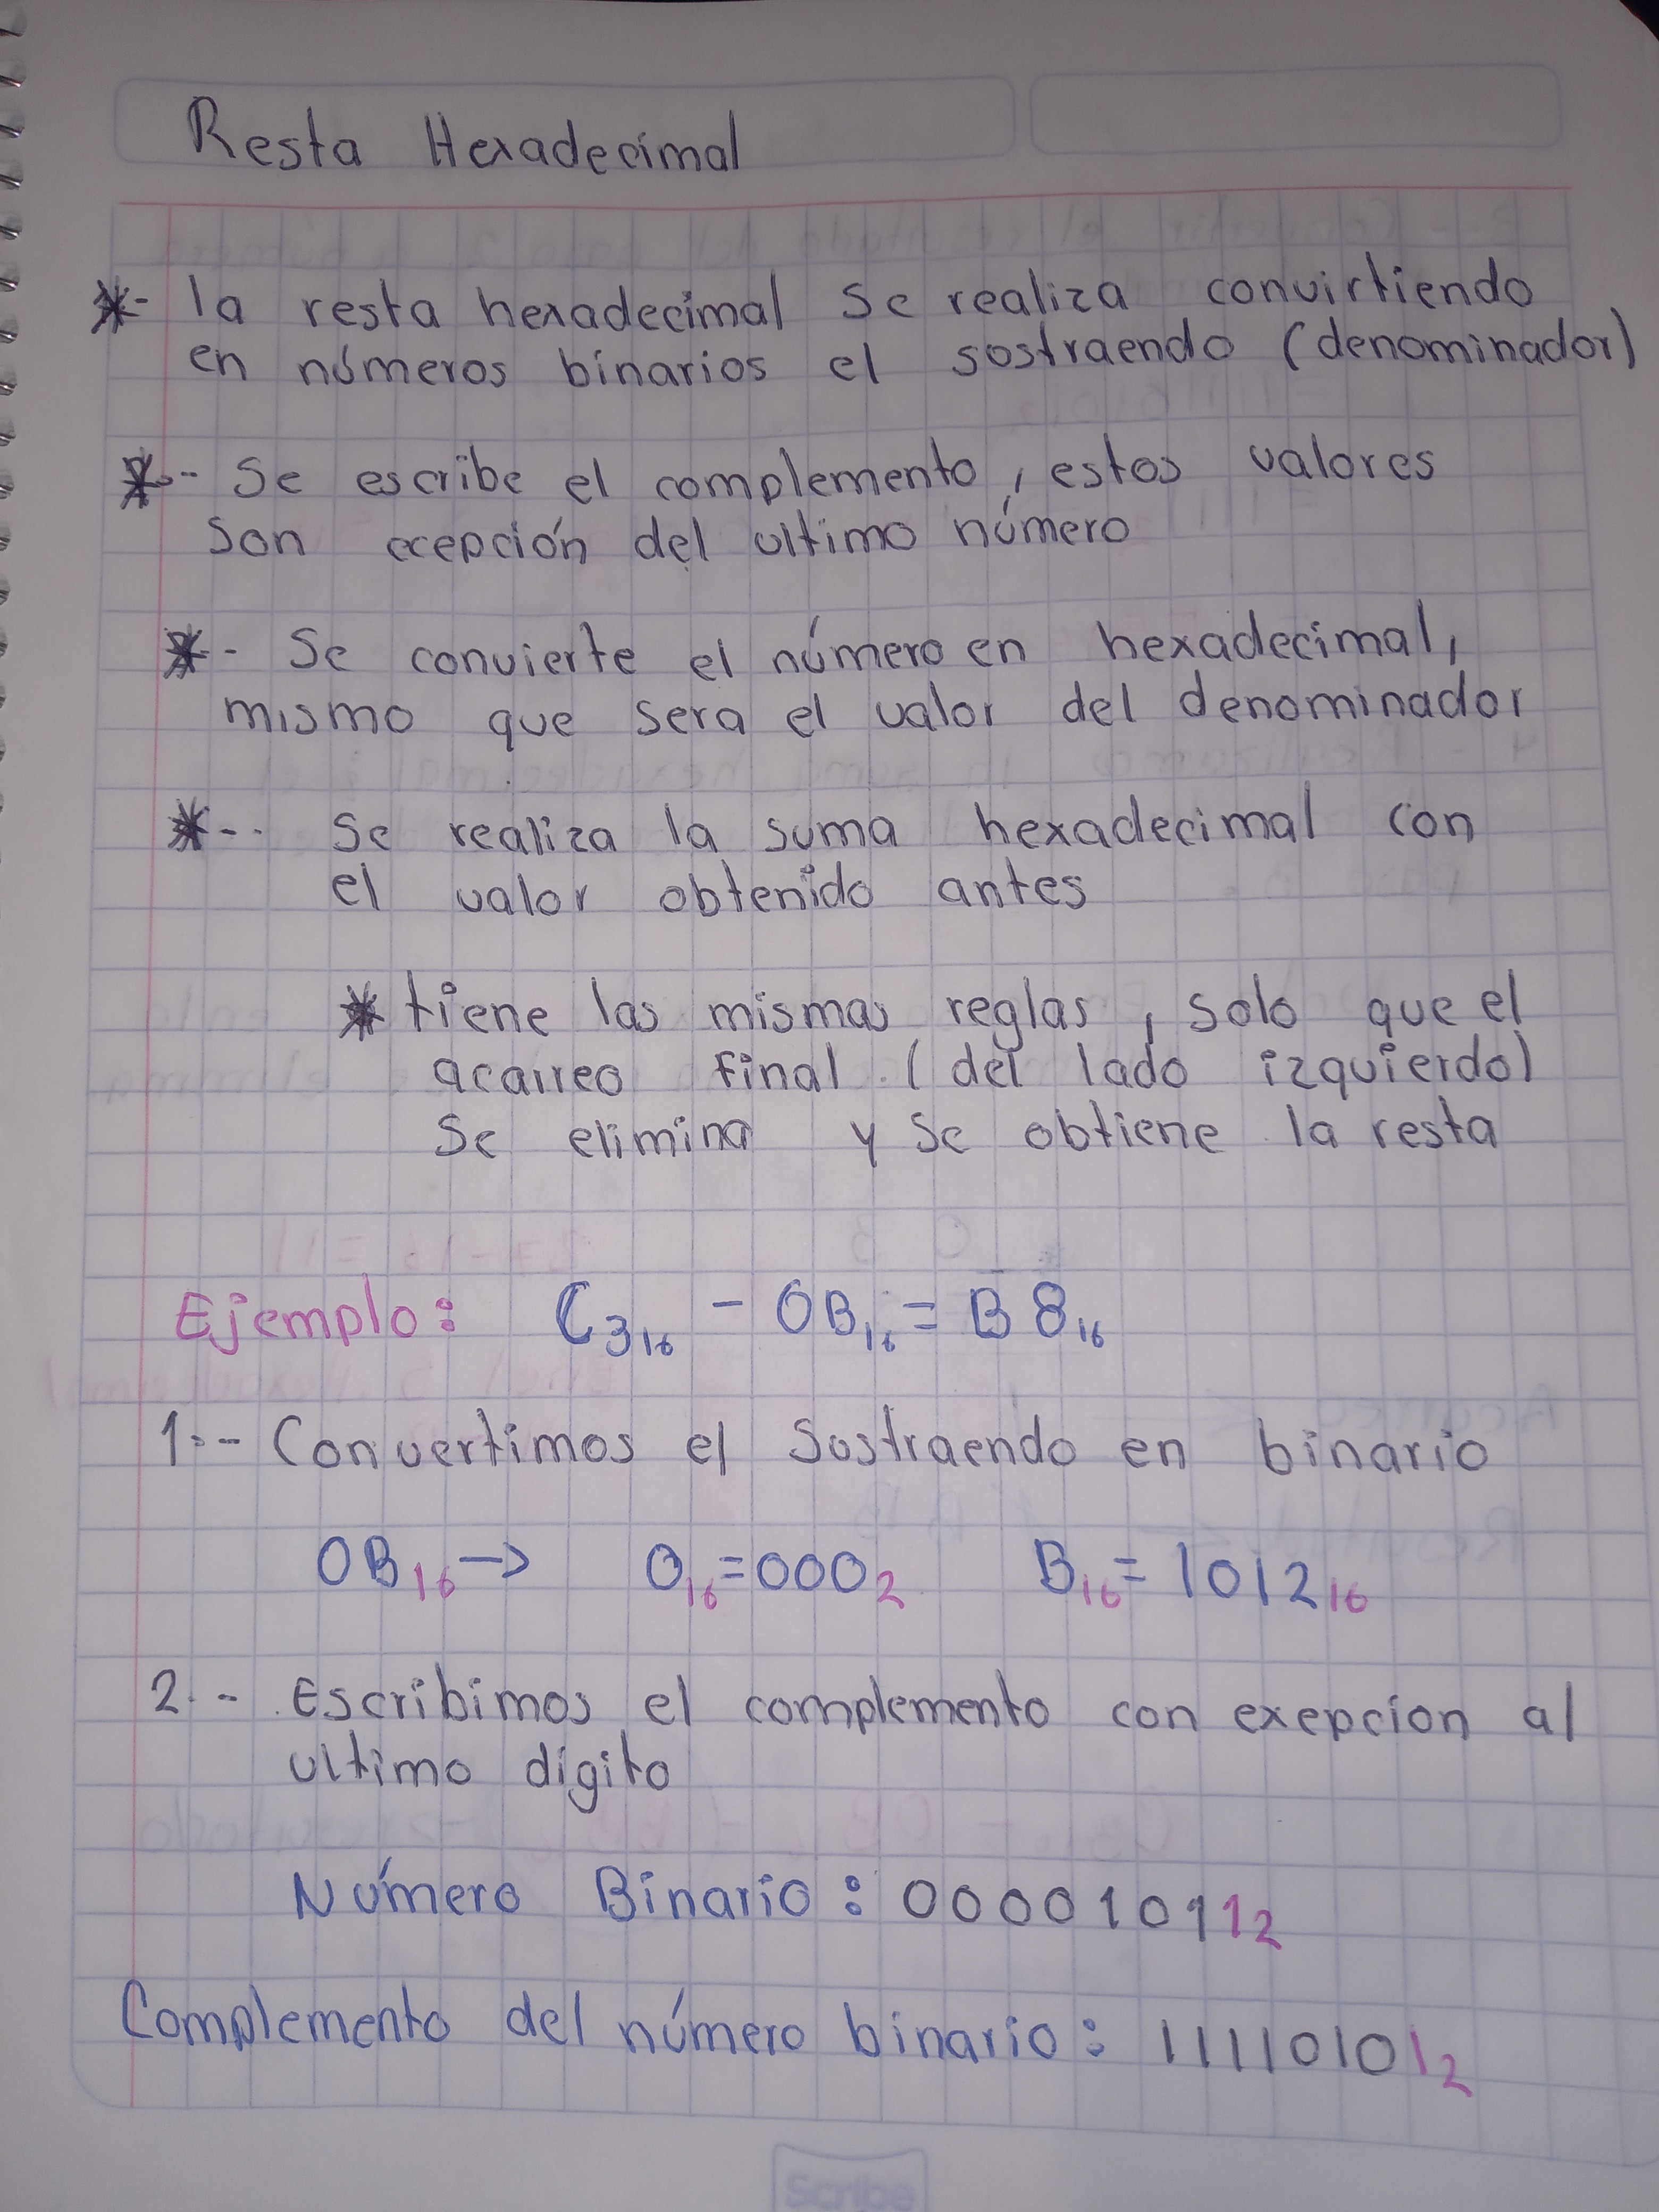 Resta Hexadecimal
*- la resta hexadecimal se realiza convirtiendo
en números binarios el sostraendo (denominador)
*-- Se escribe el complemento, estos valores
son ecepción del ultimo número
*-- Se convierte el número en hexadecimal,
mismo que sera el valor del denominador
*-- Se realiza la suma hexadecimal con
el valor obtenido antes
* tiene las mismas reglas, solo que el
acarreo final (del lado izquierdo)
se elimina y se obtiene la resta
Ejemplo: C3₁₆ - 0B₁₆ = B8₁₆
1.- Convertimos el Sustraendo en binario
0B₁₆ → 0₁₆=000₂ B₁₆=1012₁₆
2.- Escribimos el complemento con exepcion al
ultimo dígito
Número Binario: 00001011₂
Complemento del número binario: 11110101₂
Scribe